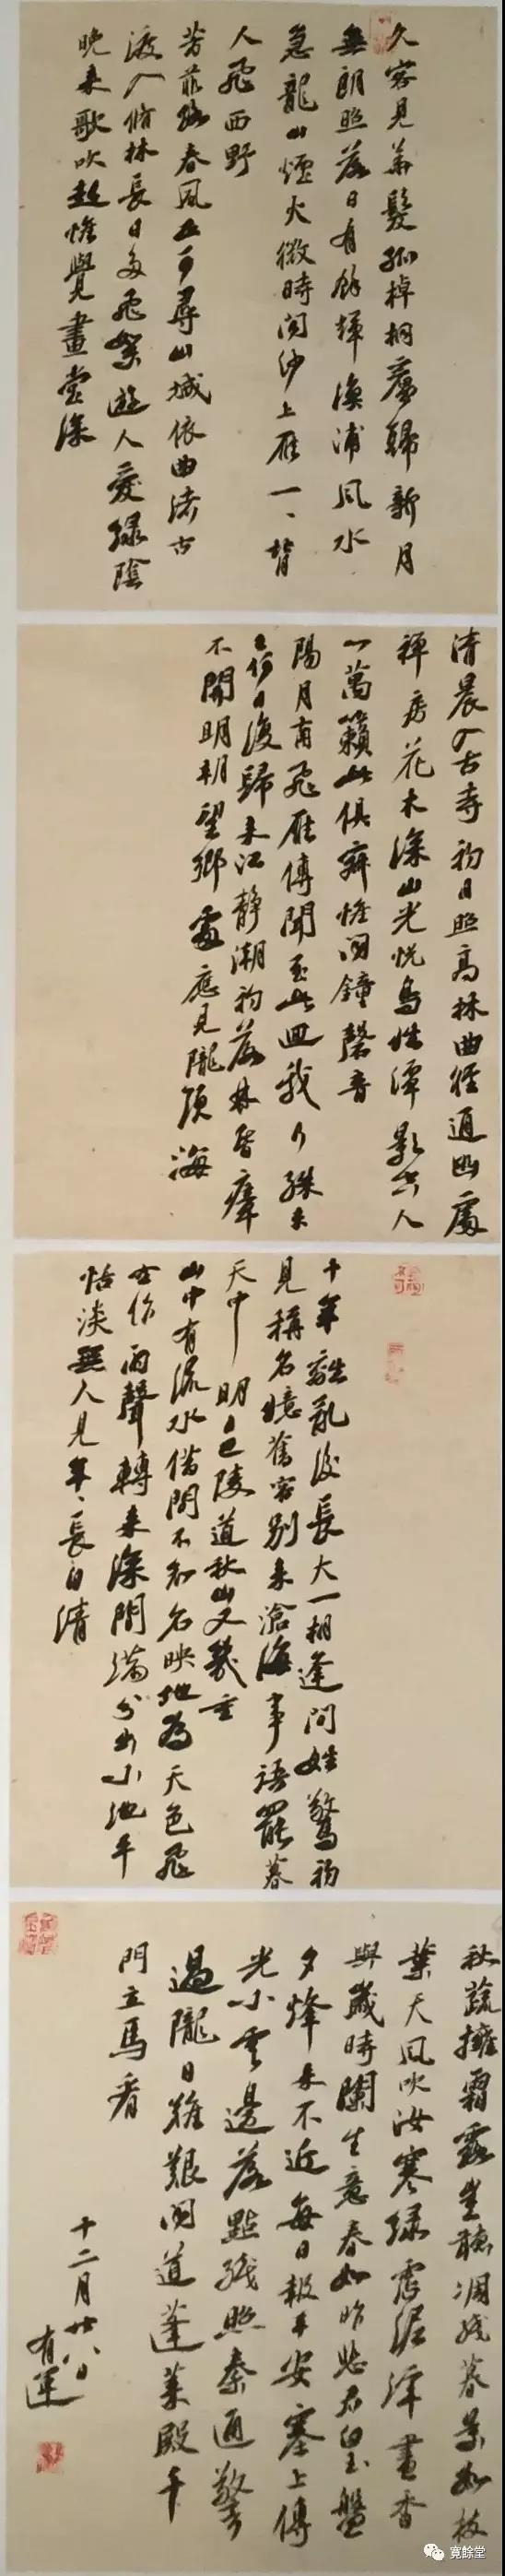 久客見華髮孤棹桐廬歸新月
無朗照落日有餘輝漁浦風水
急龍山煙火微時聞沙上雁一、皆
人飛西野
芳菲路春風正可尋山城依曲渚古
渡入脩林長日多飛絮遊人愛綠陰
晚來歌吹起惟覺畫堂深
清晨入古寺初日照高林曲徑通幽處
禪房花木深山光悅鳥性潭影空人
心萬籟此俱寂惟聞鐘磬音
陽月南飛雁傳聞至此迴我行殊未
已何日復歸來江靜潮初落林昏瘴
不開明朝望鄉處應見隴頭梅
十年離亂後長大一相逢問姓驚初
見稱名憶舊容別來滄海事語罷暮
天中明日巴陵道秋山又幾重
山中有流水借問不知名映地為天色飛
空作雨聲轉來深澗滿分出小池平
恬淡無人見年、長自清
秋蔬擁霜露豈敢凋殘暮景數枝
葉天風吹汝寒綠霑泥滓盡香
與歲時闌生意春如昨悲君白玉盤
夕烽來不近每日報平安塞上傳
光小雲邊落點殘照秦通警
過隴自艱難聞道蓬萊殿千
門立馬看
十二月廿八日
有運
寬餘堂